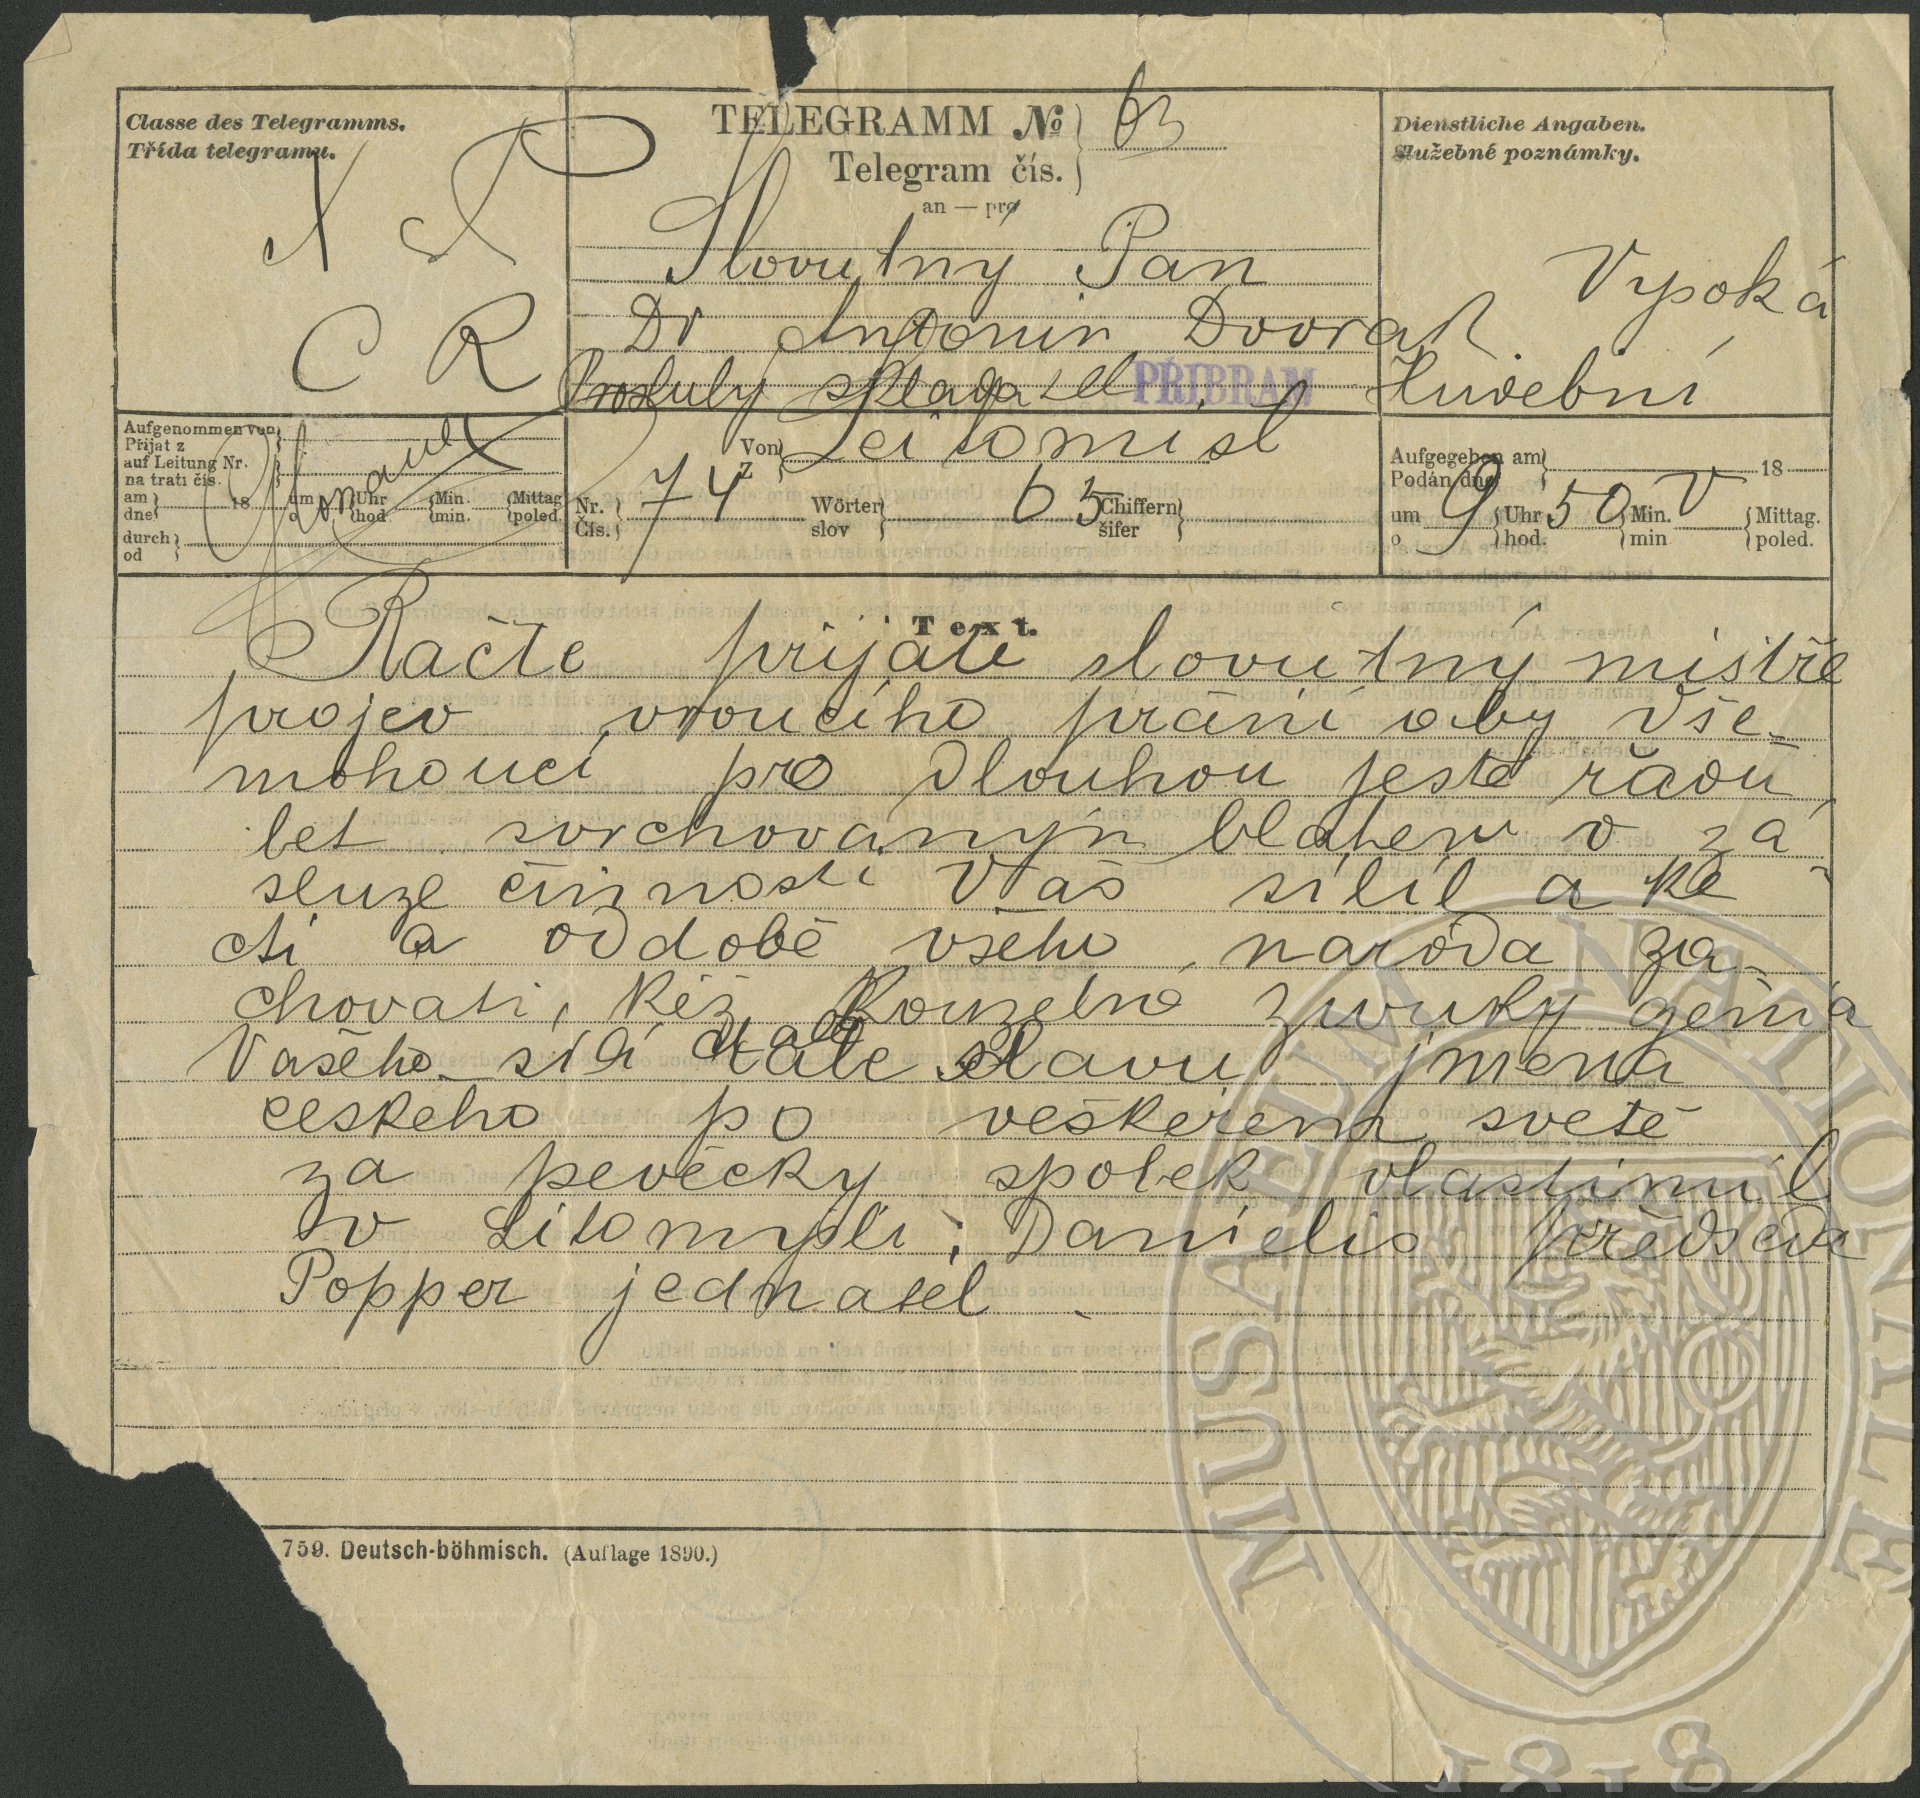 Classe des Telegramms.
Třída telegramu.
TELEGRAMM No 63
Telegram čís.
an — pro
Dienstliche Angaben.
Služebné poznámky.
Slovutný Pan
Vysoká
Dr Antonin Dvorak.
C R
Prosluly skladatel hudebni
PŘIBRAM
Aufgenommen von
Přijat z
auf Leitung Nr.
na trati čís.
am dne 18 um o Uhr hod. Min. min. Mittag poled.
durch
od
Von Z Leitomisl
Nr. Čís. 74 Wörter slov 65 Chiffern šifer
Aufgegeben am
Podán dne 18
um o 9 Uhr hod. 50 Min. min V Mittag. poled.
Text.
Račte přijati slovutný mistře
projev vroucího přání aby Vše-
mohoucí pro dlouhou ješte řadu
let svrchovaným blahem v zá
sluze činnosti Vás sílil a ke
cti a oddobě všeho naroda za-
chovati, kéž kouzelné zvuky genia
Vašeho sílí dále slavu jmena
ceskeho po veškerem svetě
za pevěcky spolek vlastimil
v Litomyšli: Danielis předseda
Popper jednatel
759. Deutsch-böhmisch. (Auflage 1890.)
MUSAEUM NATIONALE
1818